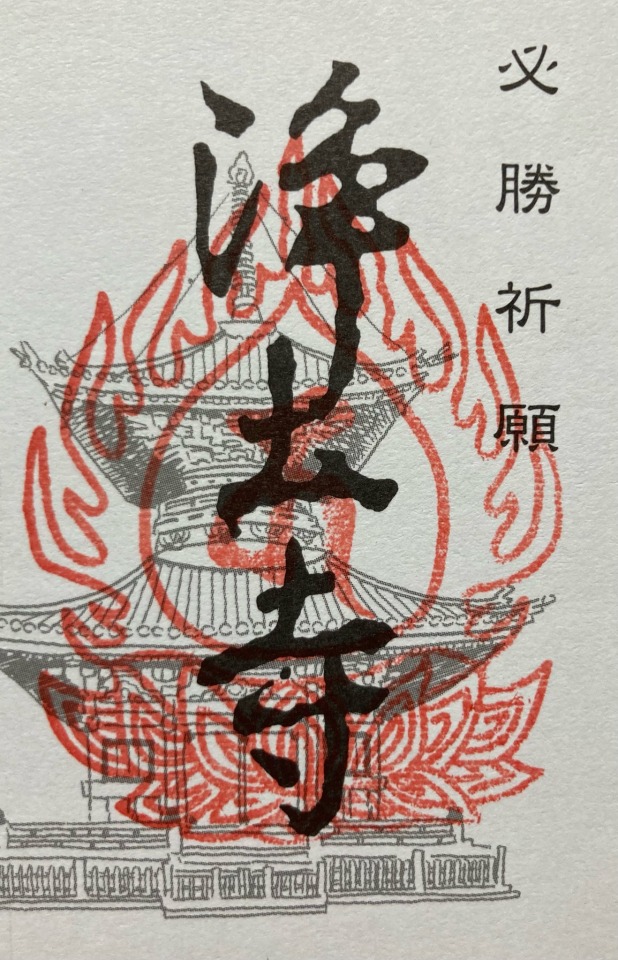 必勝祈願
浄土寺